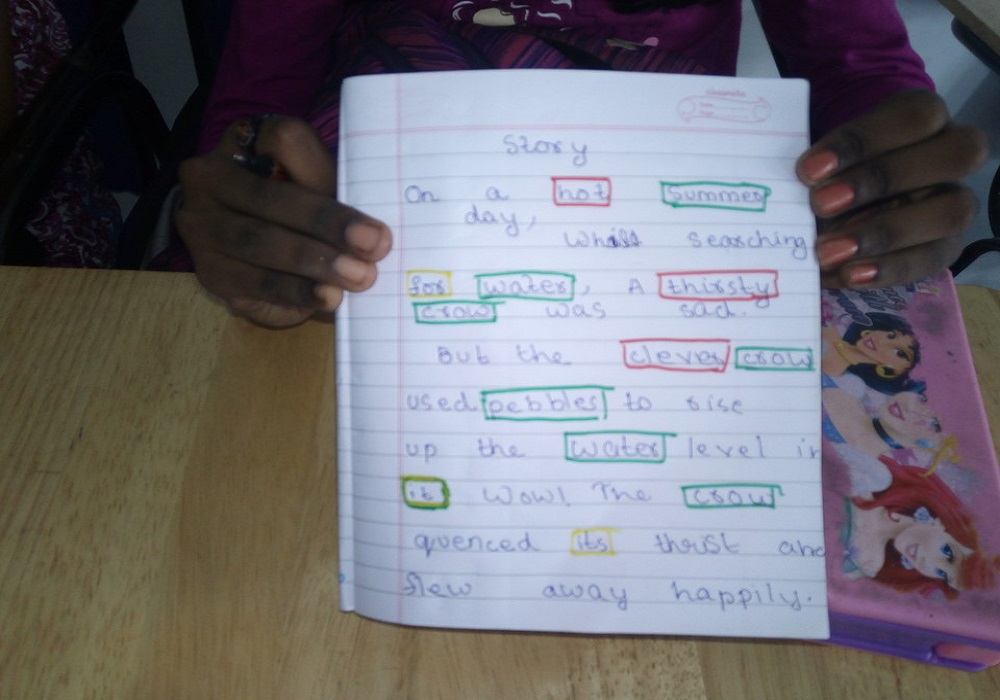 classmate
Story
On a hot Summer
day,
Whilst searching
for water, A thirsty
crow was sad.
But the clever crow
used pebbles to rise
up the water level in
it Wow! The crow
quenced its thrust and
flew away happily.